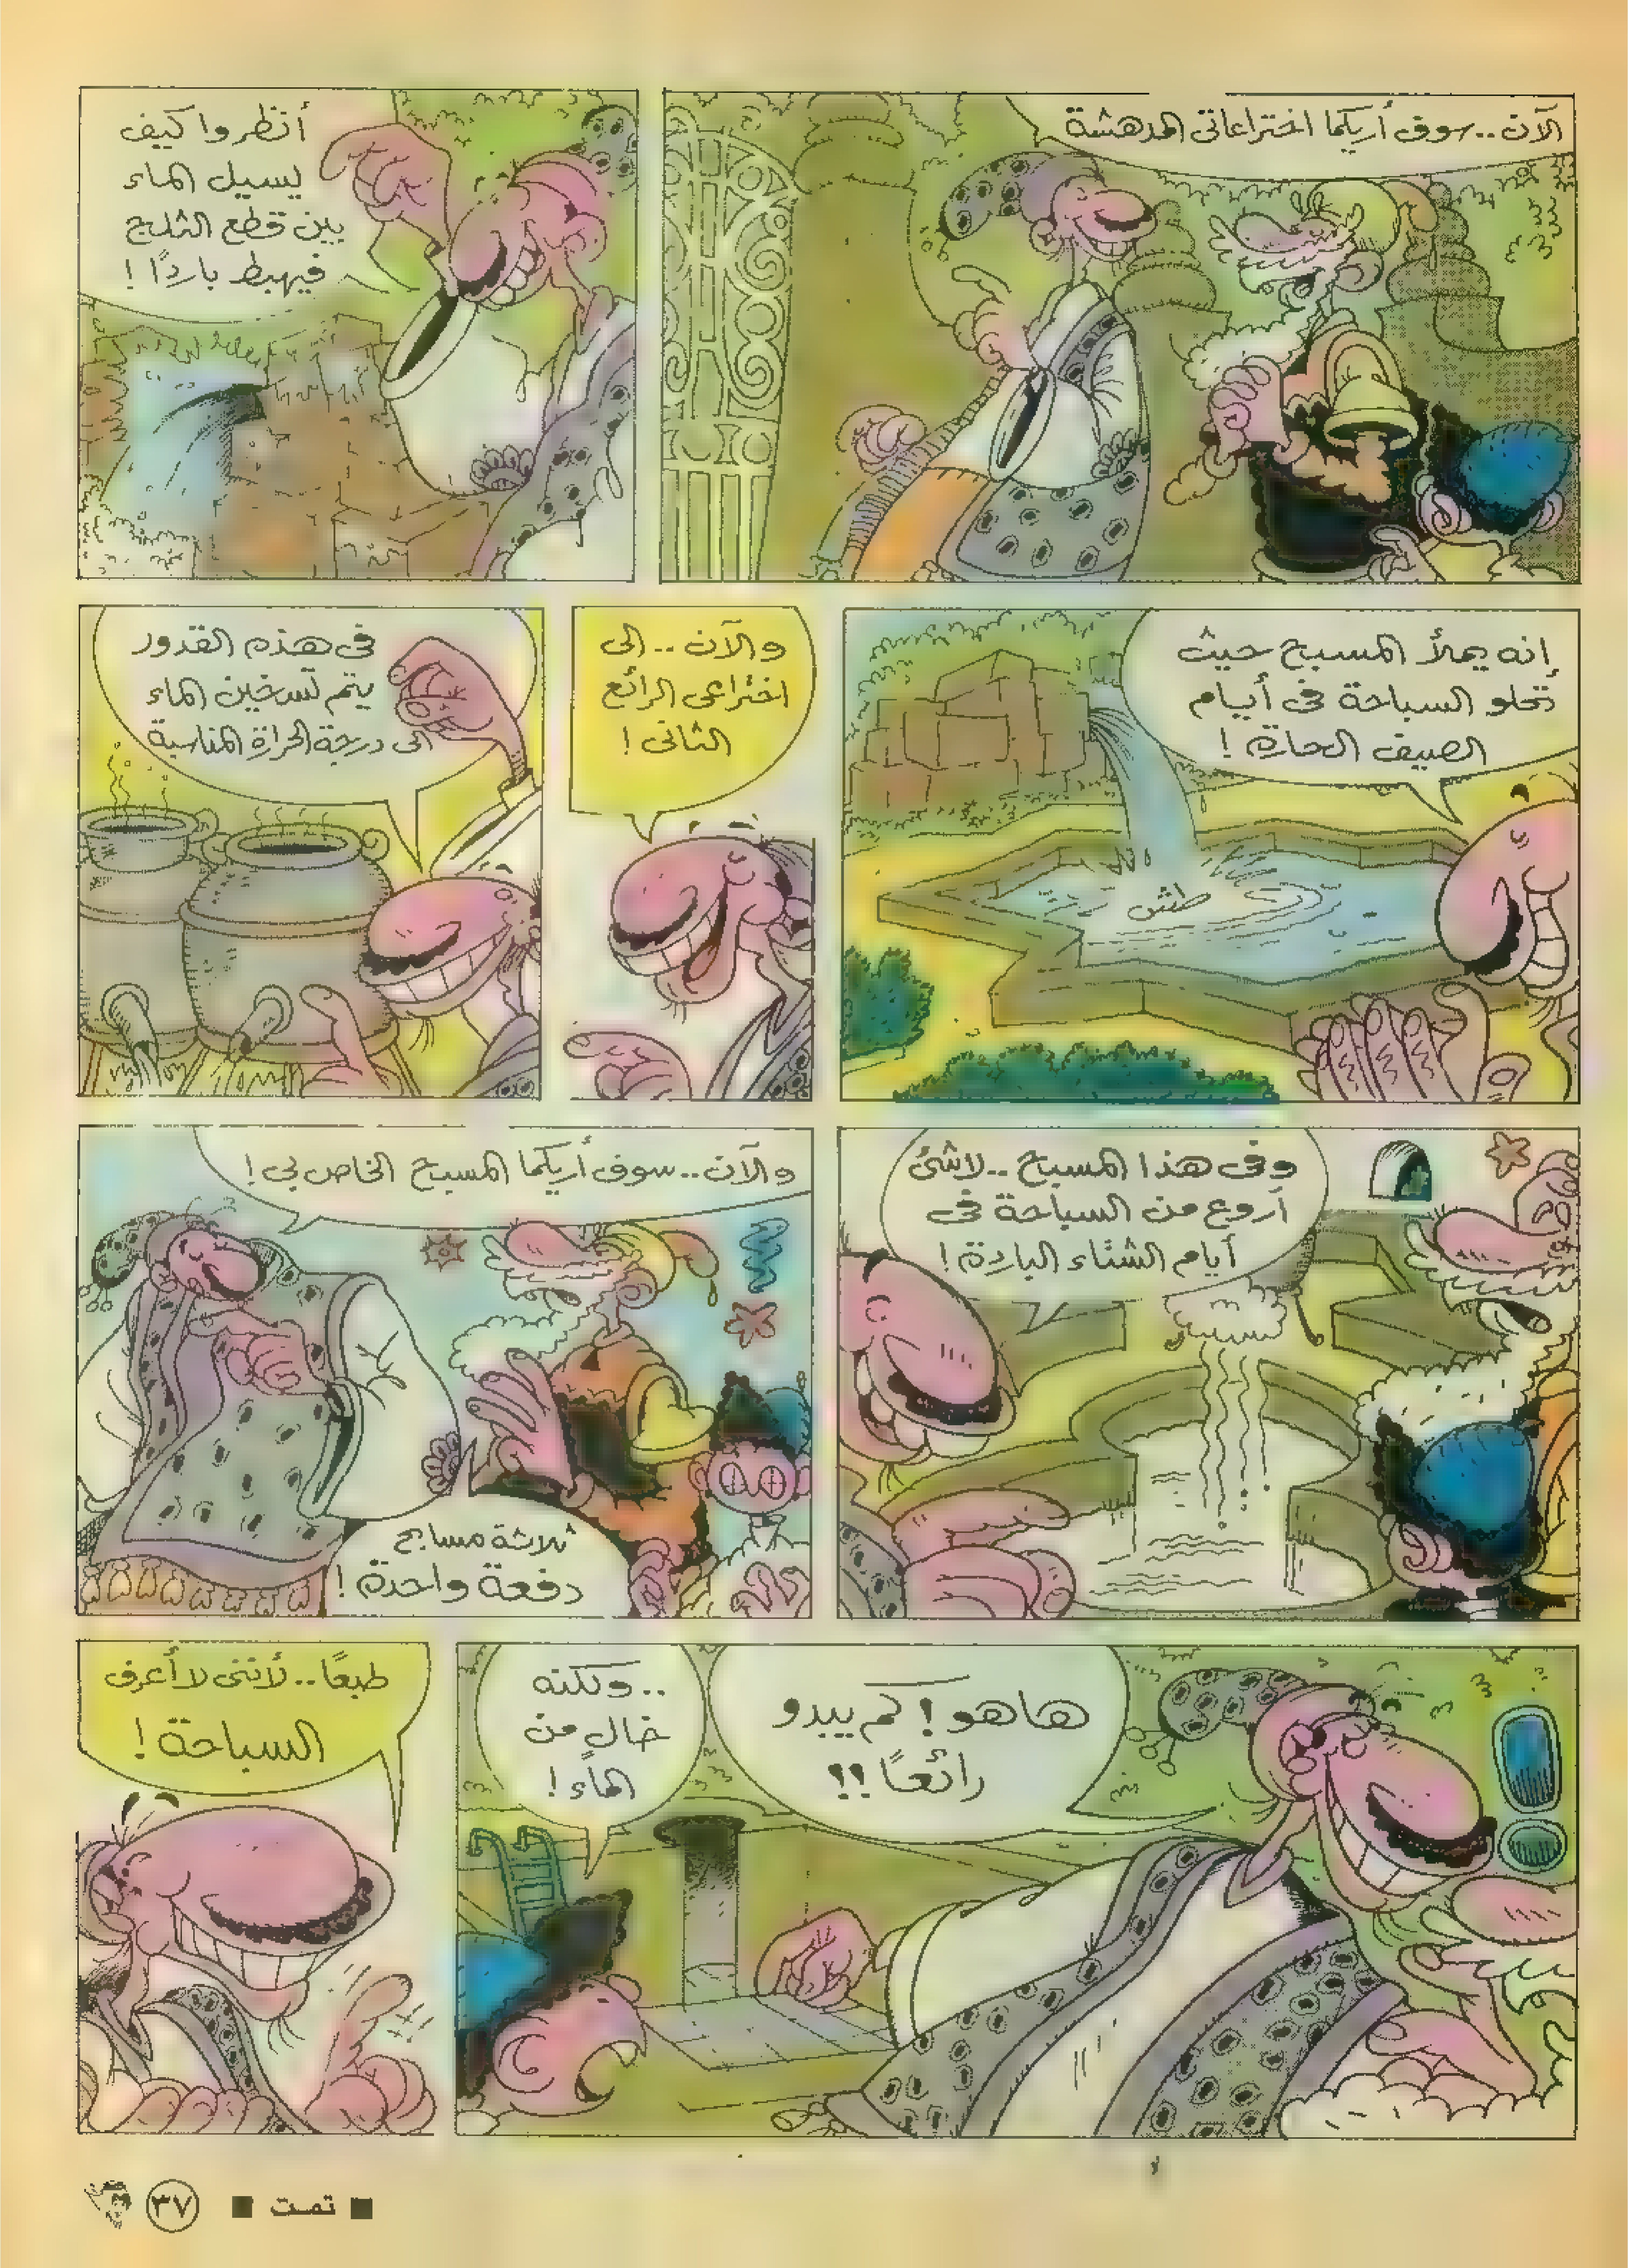 الآن..سوف أريكما اختراعاتى المدهشة
أنظروا كيف
يسيل الماء
بين قطع الثلج
فيهبط باردًا !
إنه يملأ المسبح حيث
تحلو السباحة فى أيام
الصيف الحارة !
طش
والآن .. إلى
اختراعى الرائع
الثانى !
فى هذه القدور
يتم تسخين الماء
الى درجة الحرارة المناسبة
وفى هذا المسبح ..لاشئ
أروع من السباحة فى
أيام الشتاء الباردة !
والآن..سوف أريكما المسبح الخاص بى !
ثلاثة مسابح
دفعة واحدة !
هاهو ! كم يبدو
رائعًا !!
..ولكنه
خالٍ من
الماء !
طبعًا .. لأننى لا أعرف
السباحة !
■ تمت ■
٣٧